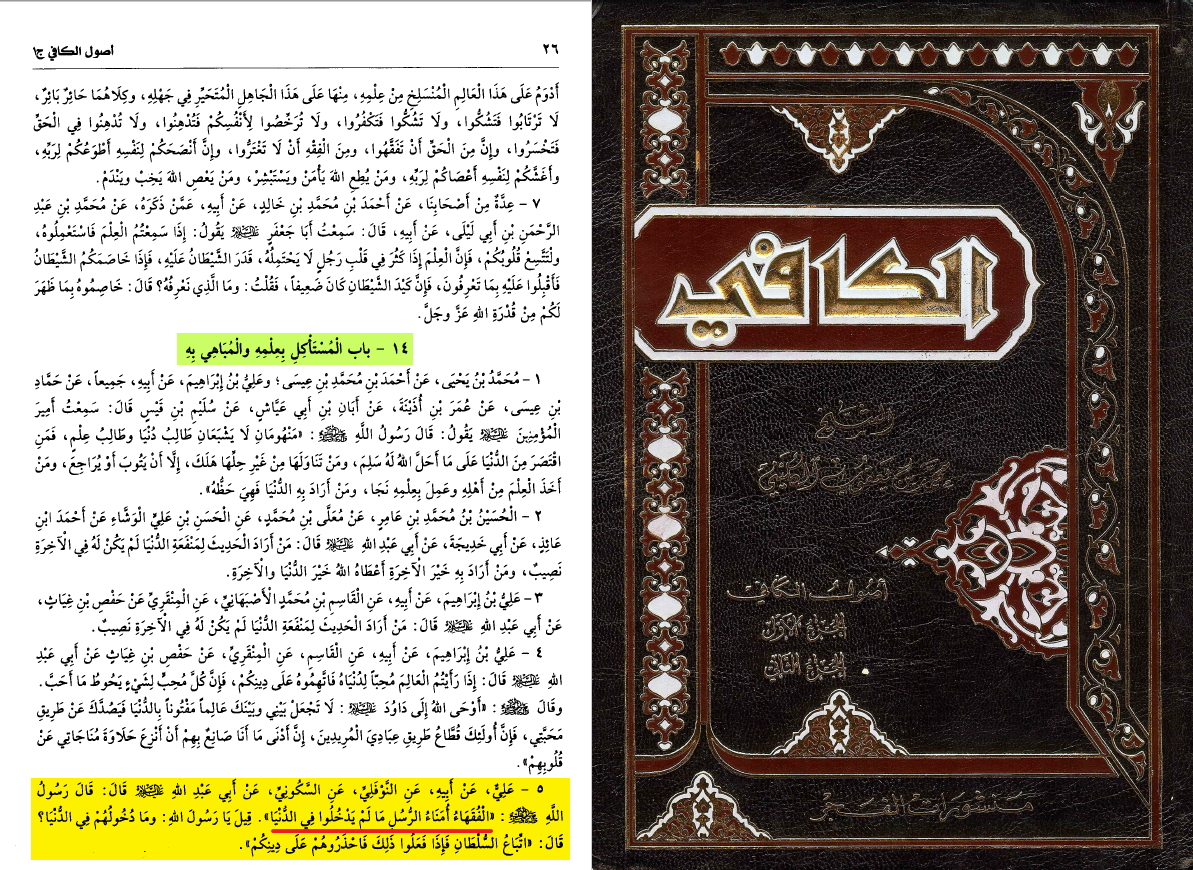 ٢٦
أصول الكافي ج١
أَدْوَمُ عَلَى هَذَا الْعَالِمِ الْمُنْسَلِخِ مِنْ عِلْمِهِ، مِنْهَا عَلَى هَذَا الْجَاهِلِ الْمُتَحَيِّرِ فِي جَهْلِهِ، وكِلَاهُمَا حَائِرٌ بَائِرٌ،
لَا تَرْتَابُوا فَتَشُكُّوا، ولَا تَشُكُّوا فَتَكْفُرُوا، ولَا تُرَخِّصُوا لِأَنْفُسِكُمْ فَتُدْهِنُوا، ولَا تُدْهِنُوا فِي الْحَقِّ
فَتَخْسَرُوا، وإِنَّ مِنَ الْحَقِّ أَنْ تَفَقَّهُوا، ومِنَ الْفِقْهِ أَنْ لَا تَغْتَرُّوا، وإِنَّ أَنْصَحَكُمْ لِنَفْسِهِ أَطْوَعُكُمْ لِرَبِّهِ،
وأَغَشَّكُمْ لِنَفْسِهِ أَعْصَاكُمْ لِرَبِّهِ، ومَنْ يُطِعِ اللهَ يَأْمَنْ ويَسْتَبْشِرْ، ومَنْ يَعْصِ اللهَ يَخِبْ ويَنْدَمْ.
٧ - عِدَّةٌ مِنْ أَصْحَابِنَا، عَنْ أَحْمَدَ بْنِ مُحَمَّدِ بْنِ خَالِدٍ، عَنْ أَبِيهِ، عَمَّنْ ذَكَرَهُ، عَنْ مُحَمَّدِ بْنِ عَبْدِ
الرَّحْمَنِ بْنِ أَبِي لَيْلَى، عَنْ أَبِيهِ، قَالَ: سَمِعْتُ أَبَا جَعْفَرٍ عليه السلام يَقُولُ: إِذَا سَمِعْتُمُ الْعِلْمَ فَاسْتَعْمِلُوهُ،
ولْتَتَّسِعْ قُلُوبُكُمْ، فَإِنَّ الْعِلْمَ إِذَا كَثُرَ فِي قَلْبِ رَجُلٍ لَا يَحْتَمِلُهُ، قَدَرَ الشَّيْطَانُ عَلَيْهِ، فَإِذَا خَاصَمَكُمُ الشَّيْطَانُ
فَأَقْبِلُوا عَلَيْهِ بِمَا تَعْرِفُونَ، فَإِنَّ كَيْدَ الشَّيْطَانِ كَانَ ضَعِيفاً، فَقُلْتُ: ومَا الَّذِي نَعْرِفُهُ؟ قَالَ: خَاصِمُوهُ بِمَا ظَهَرَ
لَكُمْ مِنْ قُدْرَةِ اللهِ عَزَّ وجَلَّ.
١٤ - باب الْمُسْتَأْكِلِ بِعِلْمِهِ والْمُبَاهِي بِهِ
١ - مُحَمَّدُ بْنُ يَحْيَى، عَنْ أَحْمَدَ بْنِ مُحَمَّدِ بْنِ عِيسَى؛ وعَلِيُّ بْنُ إِبْرَاهِيمَ، عَنْ أَبِيهِ، جَمِيعاً، عَنْ حَمَّادِ
بْنِ عِيسَى، عَنْ عُمَرَ بْنِ أُذَيْنَةَ، عَنْ أَبَانِ بْنِ أَبِي عَيَّاشٍ، عَنْ سُلَيْمِ بْنِ قَيْسٍ قَالَ: سَمِعْتُ أَمِيرَ
الْمُؤْمِنِينَ عليه السلام يَقُولُ: قَالَ رَسُولُ اللَّهِ ﷺ: «مَنْهُومَانِ لَا يَشْبَعَانِ طَالِبُ دُنْيَا وطَالِبُ عِلْمٍ، فَمَنِ
اقْتَصَرَ مِنَ الدُّنْيَا عَلَى مَا أَحَلَّ اللهُ لَهُ سَلِمَ، ومَنْ تَنَاوَلَهَا مِنْ غَيْرِ حِلِّهَا هَلَكَ، إِلَّا أَنْ يَتُوبَ أَوْ يُرَاجِعَ، ومَنْ
أَخَذَ الْعِلْمَ مِنْ أَهْلِهِ وعَمِلَ بِعِلْمِهِ نَجَا، ومَنْ أَرَادَ بِهِ الدُّنْيَا فَهِيَ حَظُّهُ».
٢ - الْحُسَيْنُ بْنُ مُحَمَّدِ بْنِ عَامِرٍ، عَنْ مُعَلَّى بْنِ مُحَمَّدٍ، عَنِ الْحَسَنِ بْنِ عَلِيٍّ الْوَشَّاءِ عَنْ أَحْمَدَ ابْنِ
عَائِذٍ، عَنْ أَبِي خَدِيجَةَ، عَنْ أَبِي عَبْدِ اللهِ عليه السلام قَالَ: مَنْ أَرَادَ الْحَدِيثَ لِمَنْفَعَةِ الدُّنْيَا لَمْ يَكُنْ لَهُ فِي الْآخِرَةِ
نَصِيبٌ، ومَنْ أَرَادَ بِهِ خَيْرَ الْآخِرَةِ أَعْطَاهُ اللهُ خَيْرَ الدُّنْيَا والْآخِرَةِ.
٣ - عَلِيُّ بْنُ إِبْرَاهِيمَ، عَنْ أَبِيهِ، عَنِ الْقَاسِمِ بْنِ مُحَمَّدٍ الْأَصْبَهَانِيِّ، عَنِ الْمِنْقَرِيِّ عَنْ حَفْصِ بْنِ غِيَاثٍ،
عَنْ أَبِي عَبْدِ اللهِ عليه السلام قَالَ: مَنْ أَرَادَ الْحَدِيثَ لِمَنْفَعَةِ الدُّنْيَا لَمْ يَكُنْ لَهُ فِي الْآخِرَةِ نَصِيبٌ.
٤ - عَلِيُّ بْنُ إِبْرَاهِيمَ، عَنْ أَبِيهِ، عَنِ الْقَاسِمِ، عَنِ الْمِنْقَرِيِّ، عَنْ حَفْصِ بْنِ غِيَاثٍ عَنْ أَبِي عَبْدِ
اللهِ عليه السلام قَالَ: إِذَا رَأَيْتُمُ الْعَالِمَ مُحِبّاً لِدُنْيَاهُ فَاتَّهِمُوهُ عَلَى دِينِكُمْ، فَإِنَّ كُلَّ مُحِبٍّ لِشَيْءٍ يَحُوطُ مَا أَحَبَّ.
وقَالَ ﷺ: «أَوْحَى اللهُ إِلَى دَاوُدَ عليه السلام: لَا تَجْعَلْ بَيْنِي وبَيْنَكَ عَالِماً مَفْتُوناً بِالدُّنْيَا فَيَصُدَّكَ عَنْ طَرِيقِ
مَحَبَّتِي، فَإِنَّ أُولَئِكَ قُطَّاعُ طَرِيقِ عِبَادِيَ الْمُرِيدِينَ، إِنَّ أَدْنَى مَا أَنَا صَانِعٌ بِهِمْ أَنْ أَنْزِعَ حَلَاوَةَ مُنَاجَاتِي عَنْ
قُلُوبِهِمْ».
٥ - عَلِيٌّ، عَنْ أَبِيهِ، عَنِ النَّوْفَلِيِّ، عَنِ السَّكُونِيِّ، عَنْ أَبِي عَبْدِ اللهِ عليه السلام قَالَ: قَالَ رَسُولُ
اللَّهِ ﷺ: «الْفُقَهَاءُ أُمَنَاءُ الرُّسُلِ مَا لَمْ يَدْخُلُوا فِي الدُّنْيَا». قِيلَ يَا رَسُولَ اللهِ: ومَا دُخُولُهُمْ فِي الدُّنْيَا؟
قَالَ: «اتِّبَاعُ السُّلْطَانِ فَإِذَا فَعَلُوا ذَلِكَ فَاحْذَرُوهُمْ عَلَى دِينِكُمْ».
الكافي
الشيخ
محمد بن يعقوب الكليني
أصول الكافي
الجزء الأول
الجزء الثاني
منشورات الفجر